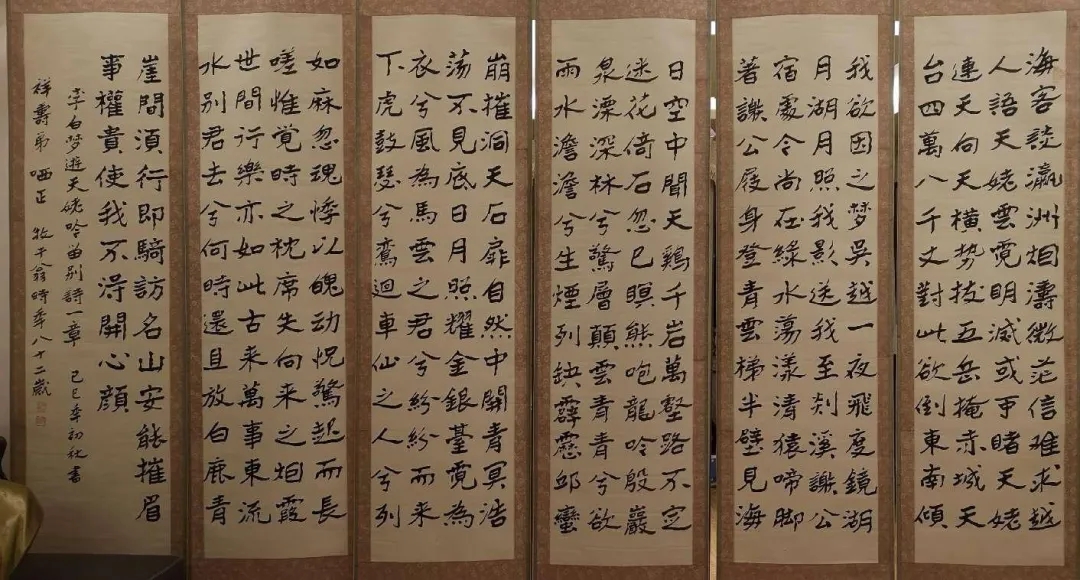 海客談瀛洲烟濤微茫信难求越
人語天姥雲霓明滅或可睹天姥
連天向天橫势拔五岳掩赤城天
台四萬八千丈對此欲倒東南傾
我欲因之梦吴越一夜飛度鏡湖
月湖月照我影送我至剡溪謝公
宿處今尚在綠水蕩漾清猿啼脚
著謝公屐身登青雲梯半壁見海
日空中聞天鷄千岩萬壑路不定
迷花倚石忽已暝熊咆龍吟殷巖
泉溧深林兮驚層顛雲青青兮欲
雨水澹澹兮生煙列缺霹靂邱巒
崩摧洞天石扉自然中開青冥浩
蕩不見底日月照耀金銀臺霓為
衣兮風為馬雲之君兮紛紛而来
下虎鼓瑟兮鸞迴車仙之人兮列
如麻忽魂悸以魄动怳驚起而長
嗟惟覺時之枕席失向来之烟霞
世間行樂亦如此古来萬事東流
水别君去兮何時還且放白鹿青
崖間須行即騎訪名山安能摧眉
事權貴使我不得開心顔
李白梦遊天姥吟留别詩一章 己巳年初秋書
祥壽弟哂正 牧干翁時年八十二歲